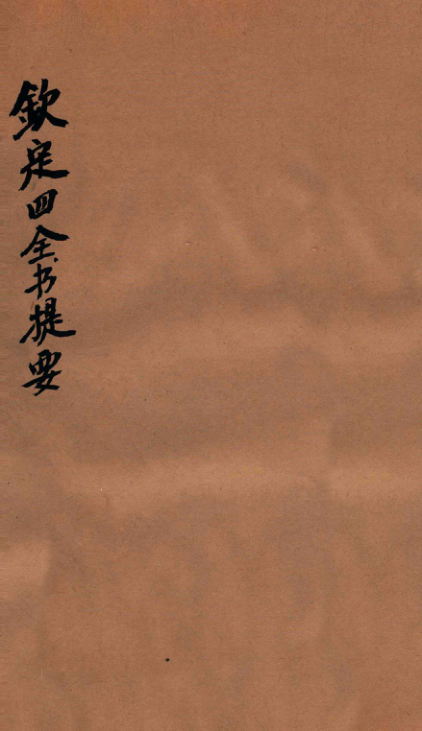 欽定四全书提要